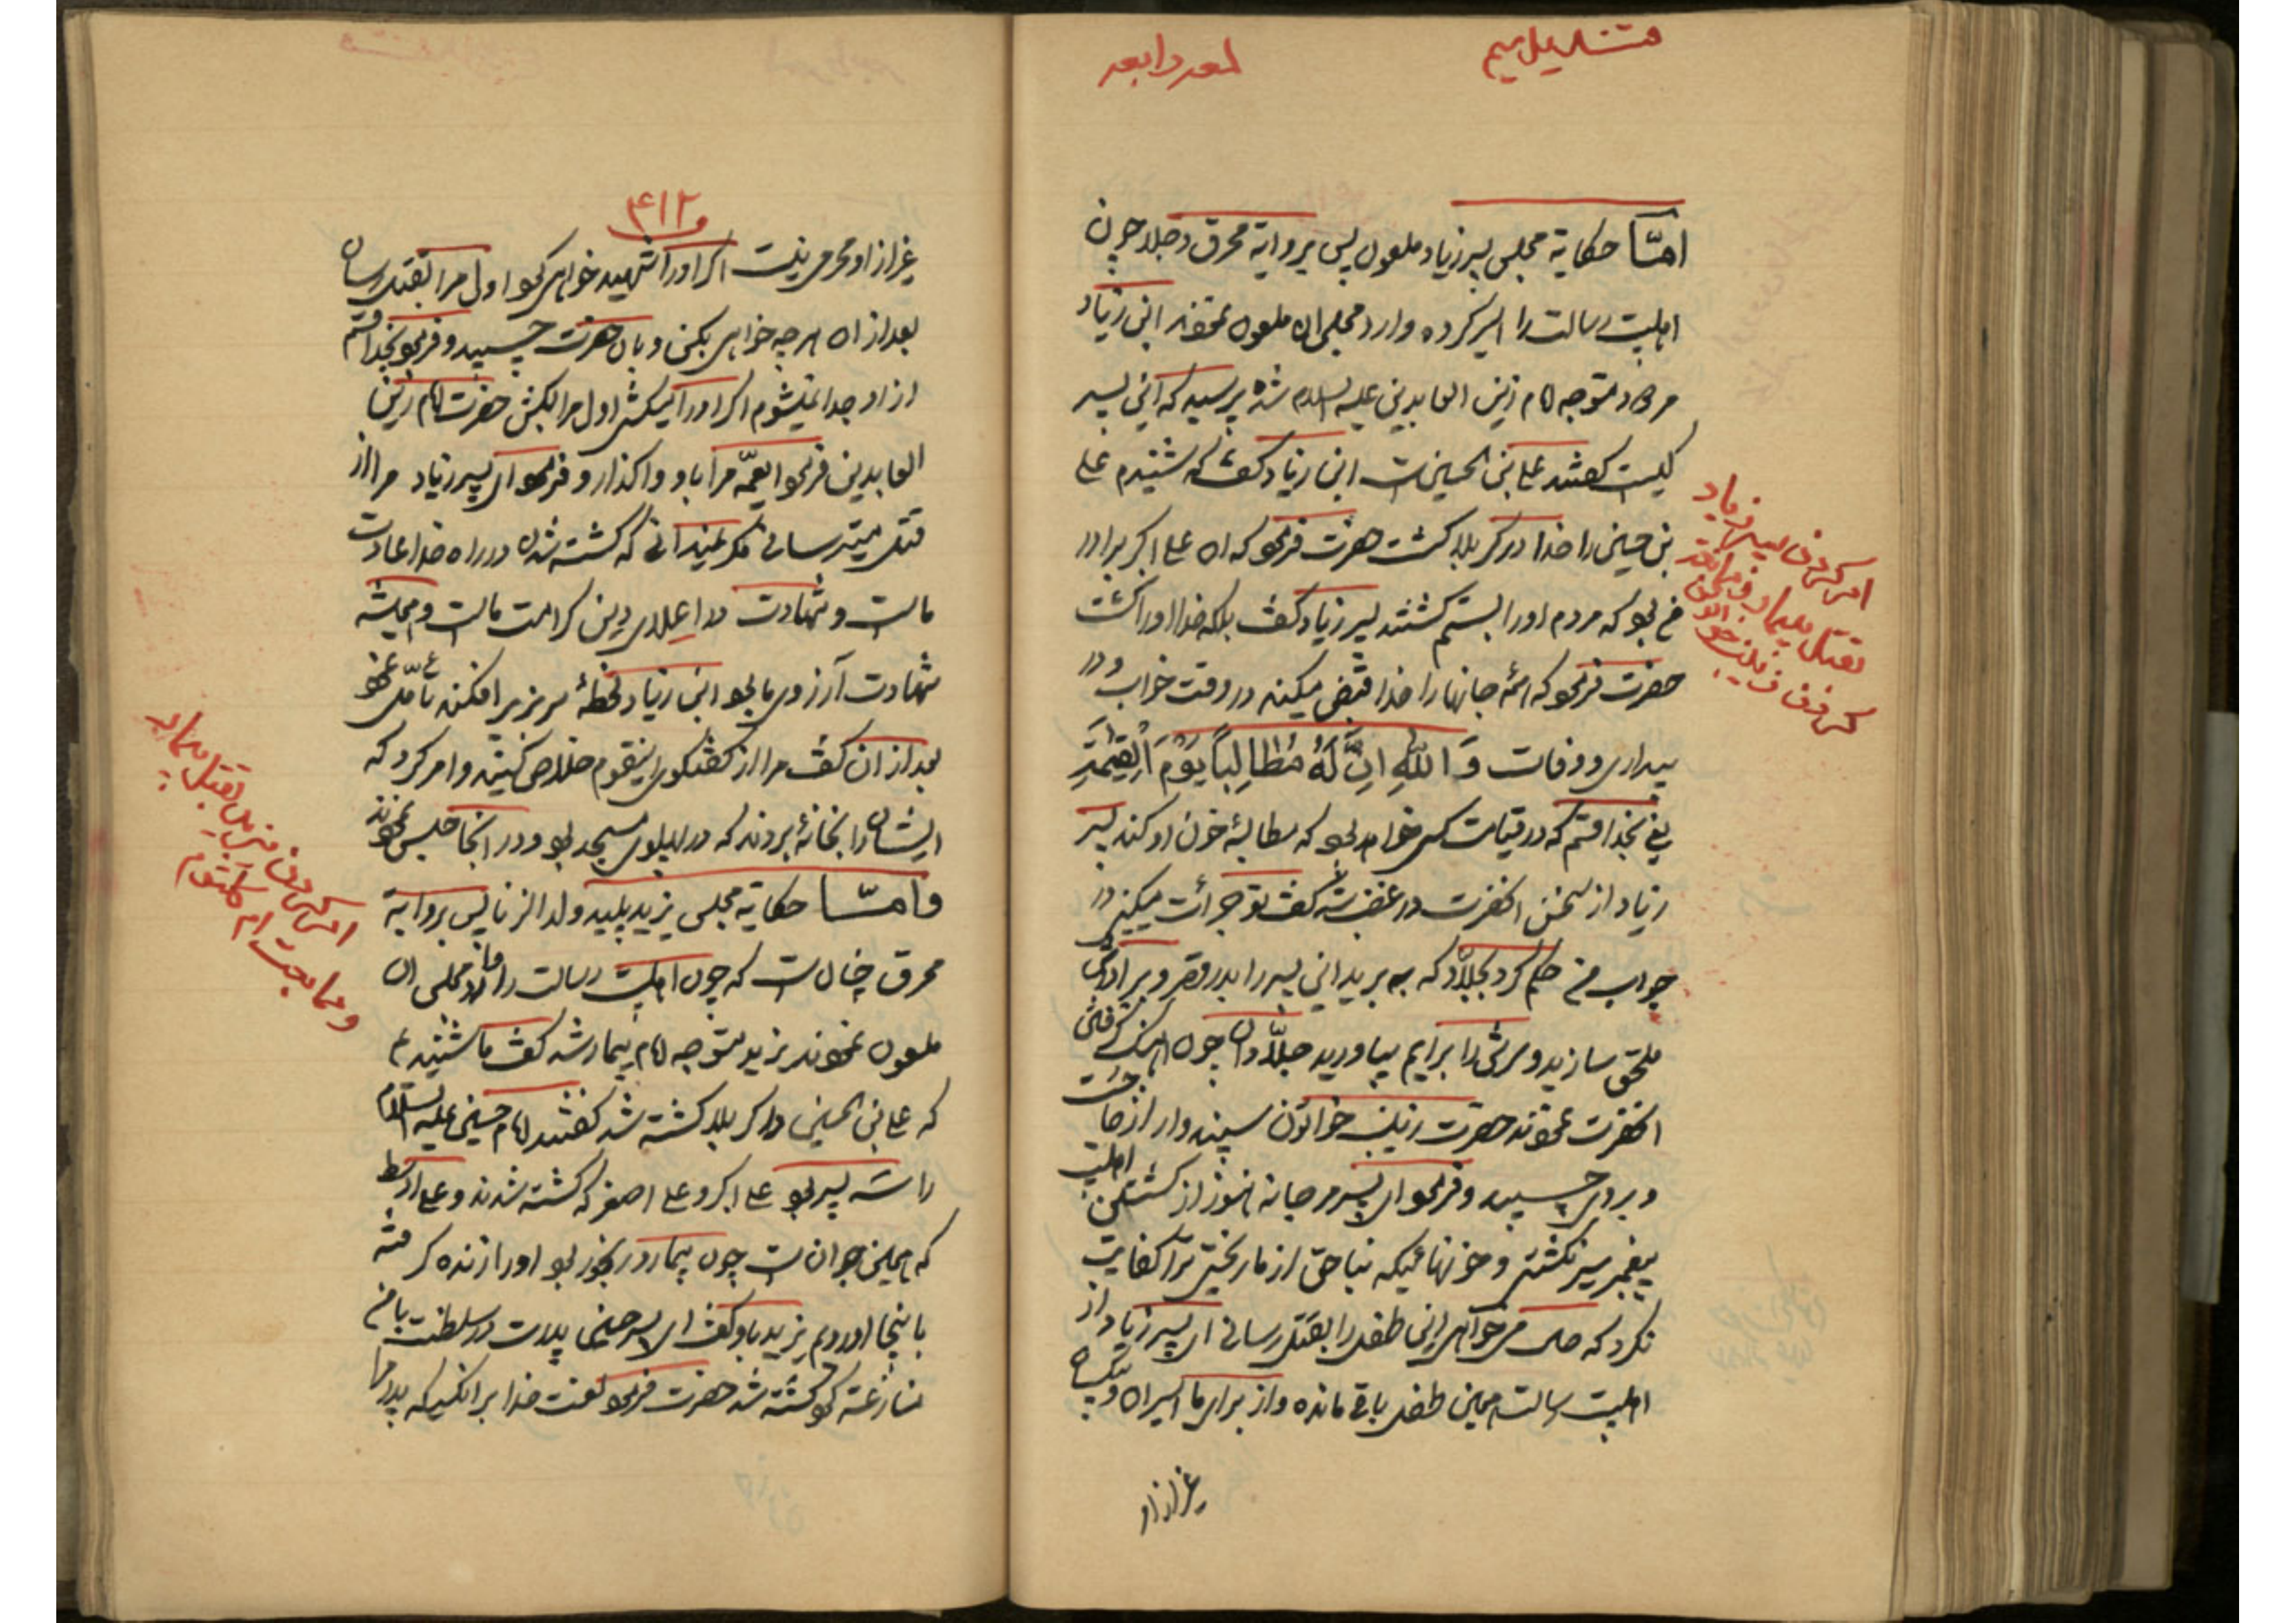 قندیل سیم
لمعه رابعه
امّا حکایة مجلس پسر زیاد ملعون پس بروایة محرق و جلاء چون
اهلبیت رسالت را اسیر کرده وارد مجلس ان ملعون نمودند ابن زیاد
مردود متوجه امام زین العابدین علیه السلام شده پرسید که این پسر
کیست گفتند علی بن الحسین است ابن زیاد گفت که شنیدم علی
بن حسین را خدا در کربلا کشت حضرت فرمود که ان علی اکبر برادر
من بود که مردم او را بستم کشتند پسر زیاد گفت بلکه خدا او را کشت
حضرت فرمود که همه جانها را خدا قبض میکند در وقت خواب و در
بیداری و وفات وَاللّٰهِ اِنَّ لَهُ مُطٰالِباً یَوْمَ الْقِیٰمَةِ
یعنی بخدا قسم که در قیامت کسی خواهد بود که مطالبهٔ خون او کند پسر
زیاد از سخن انحضرت در غضب شد گفت تو جرأت میکنی در
جواب من حکم کرد بجلاّد که به برید این پسر را بدر قصر و ببرادرش
ملحق سازید و سرش را برایم بیاورید جلاّدان چون اهنک قتل
انحضرت نمودند حضرت زینب خواتون سپندوار از جا جست
و بر وی چسپید و فرمود ای پسر مرجانه هنوز از کشتن اهلبیت
پیغمبر سیر نکشتی و خونهائیکه بناحق از ما ریختی ترا کفایت
نکرد که حال میخواهی این طفل را بقتل رسانی ای پسر زیاد از
اهلبیت رسالت همین طفل باقی مانده و از برای ما اسیران و بیکسان
غیر از او
امر کردن پسر زیاد
بقتل بیمار و ممانعت
کردن زینب خواتون
۴۱۲
غیر از او محرمی نیست اکر او را شهید خواهی کرد اول مرا بقتل رسان
بعد از ان هر چه خواهی بکنی و بان حضرت چسپید و فرمود بخدا قسم
از او جدا نمیشوم اکر او را میکشی اول مرا بکش حضرت امام زین
العابدین فرمود ایعمّه مرا باو واکذار و فرمود ای پسر زیاد مرا از
قتل میترسانی مکر نمیدانی که کشته شدن در راه خدا عادت
ماست و شهادت در اعلای دین کرامت ماست و همیشه
شهادت آرزوی ما بود ابن زیاد لحظهٔ سر بزیر افکند تأمّلی نمود
بعد از ان گفت مرا از گفتکوی اینقوم خلاص کنید و امر کرد که
ایشان را بخانهٔ بردند که در پهلوی مسجد بود و در انجا حبس نمودند
وامّا حکایة مجلس یزید پلید ولد الزنا پس بروایة
محرق چنان است که چون اهلبیت رسالت را وارد مجلس ان
ملعون نمودند یزید متوجه امام بیمار شد گفت ما شنیدیم
که علی بن الحسین در کربلا کشته شد گفتند امام حسین علیه السلام
را سه پسر بود علی اکبر و علی اصغر که کشته شدند و علی اوسط
که همین جوان است چون بیمار و رنجور بود او را زنده کرفته
باینجا اوردیم یزید باو گفت ای پسر حسین پدرت در سلطنت با من
منازعه کرد کشته شد حضرت فرمود لعنت خدا بر انکسیکه پدر مرا
امر کردن یزید بقتل بیمار
و ممانعت ام کلثوم